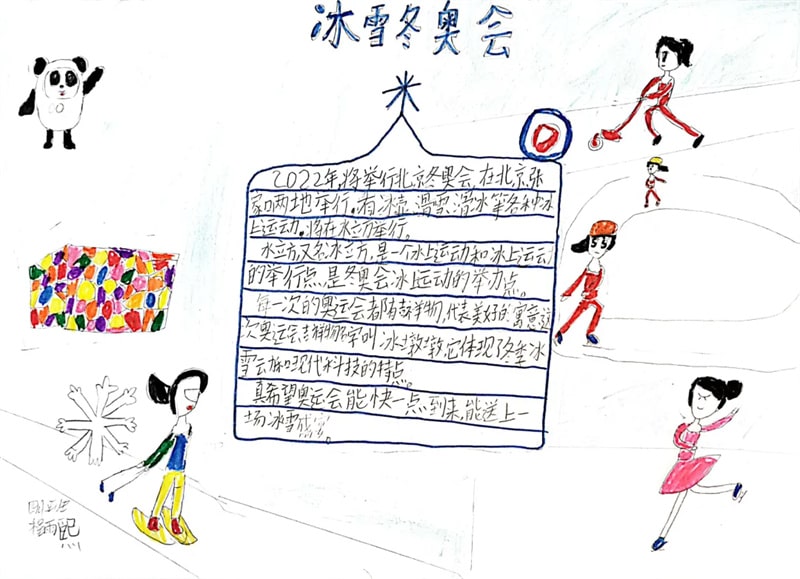 冰雪冬奥会
2022年,将举行北京冬奥会,在北京张
家口两地举行。有冰壶、滑雪、滑冰等各种冰
上运动。将在水立方举行。
水立方,又名冰立方,是一个水上运动和冰上运动
的举行点,是冬奥会冰上运动的举办点。
每一次的奥运会都陪吉祥物,代表美好的寓意,这
次奥运会吉祥物名字叫冰墩墩,它体现了冬季冰
雪云和现代科技的特点。
真希望奥运会能快一点到来,能送上一
场冰雪盛宴。